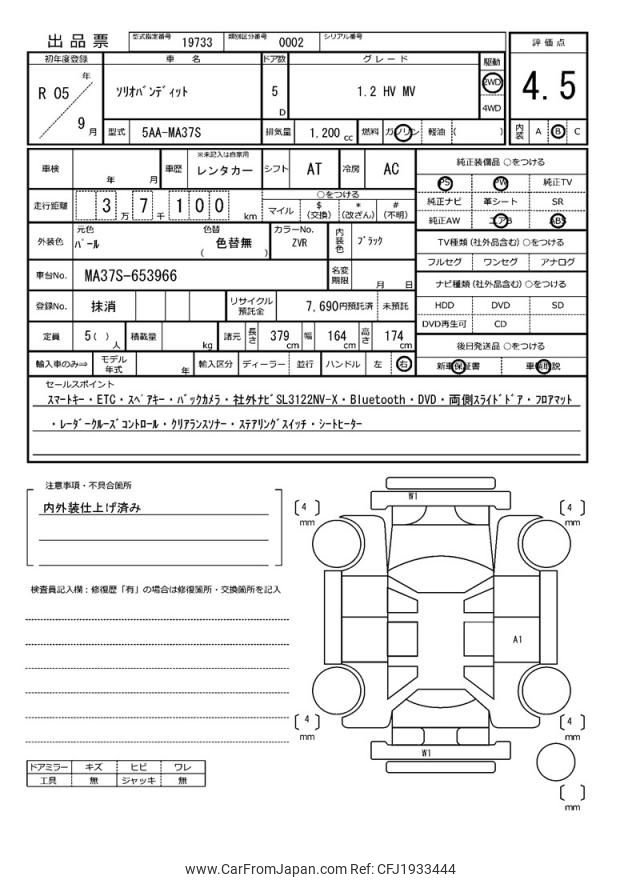 出品票 型式指定番号 19733 類別区分番号 0002 シリアル番号
評価点
4.5
内装 A B C
初年度登録 車名 ドア数 グレード 駆動
R 05 年 9 月 ソリオバンディット 5 D 1.2 HV MV 2WD 4WD
型式 5AA-MA37S 排気量 1.200 cc 燃料 ガソリン 軽油 ( )
車検 年 月 車歴 ※未記入は自家用 レンタカー シフト AT 冷房 AC
走行距離 3 万 7 千 1 0 0 km
○をつける
マイル $ (交換) * (改ざん) # (不明)
外装色 元色 パール 色替 色替無 ( ) カラーNo. ZVR 内装色 ブラック
車台No. MA37S-653966 名変期限 月 日
登録No. 抹消 リサイクル預託金 7,690円預託済 未預託
定員 5( ) 人 積載量 kg 諸元 長さ 379 cm 幅 164 cm 高さ 174 cm
輸入車のみ⇒ モデル年式 年 輸入区分 ディーラー 並行 ハンドル 左 右
純正装備品 ○をつける
PS PW 純正TV
純正ナビ 革シート SR
純正AW エアB ABS
TV種類 (社外品含む) ○をつける
フルセグ ワンセグ アナログ
ナビ種類 (社外品含む) ○をつける
HDD DVD SD
DVD再生可 CD
後日発送品 ○をつける
新車保証書 車輌取説
セールスポイント
スマートキー・ETC・スペアキー・バックカメラ・社外ナビSL3122NV-X・Bluetooth・DVD・両側スライドドア・フロアマット
・レーダークルーズコントロール・クリアランスソナー・ステアリングスイッチ・シートヒーター
注意事項・不具合箇所
内外装仕上げ済み
検査員記入欄：修復歴「有」の場合は修復箇所・交換箇所を記入
W1
[ 4 ] mm
[ 4 ] mm
A1
[ 4 ] mm
[ 4 ] mm
W1
[ ] mm
ドアミラー キズ ヒビ ワレ
工具 無 ジャッキ 無
www.CarFromJapan.com Ref: CFJ1933444